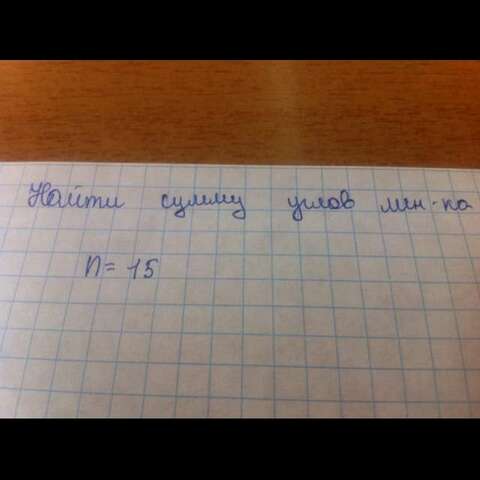 Найти сумму углов мн-ка
n = 15